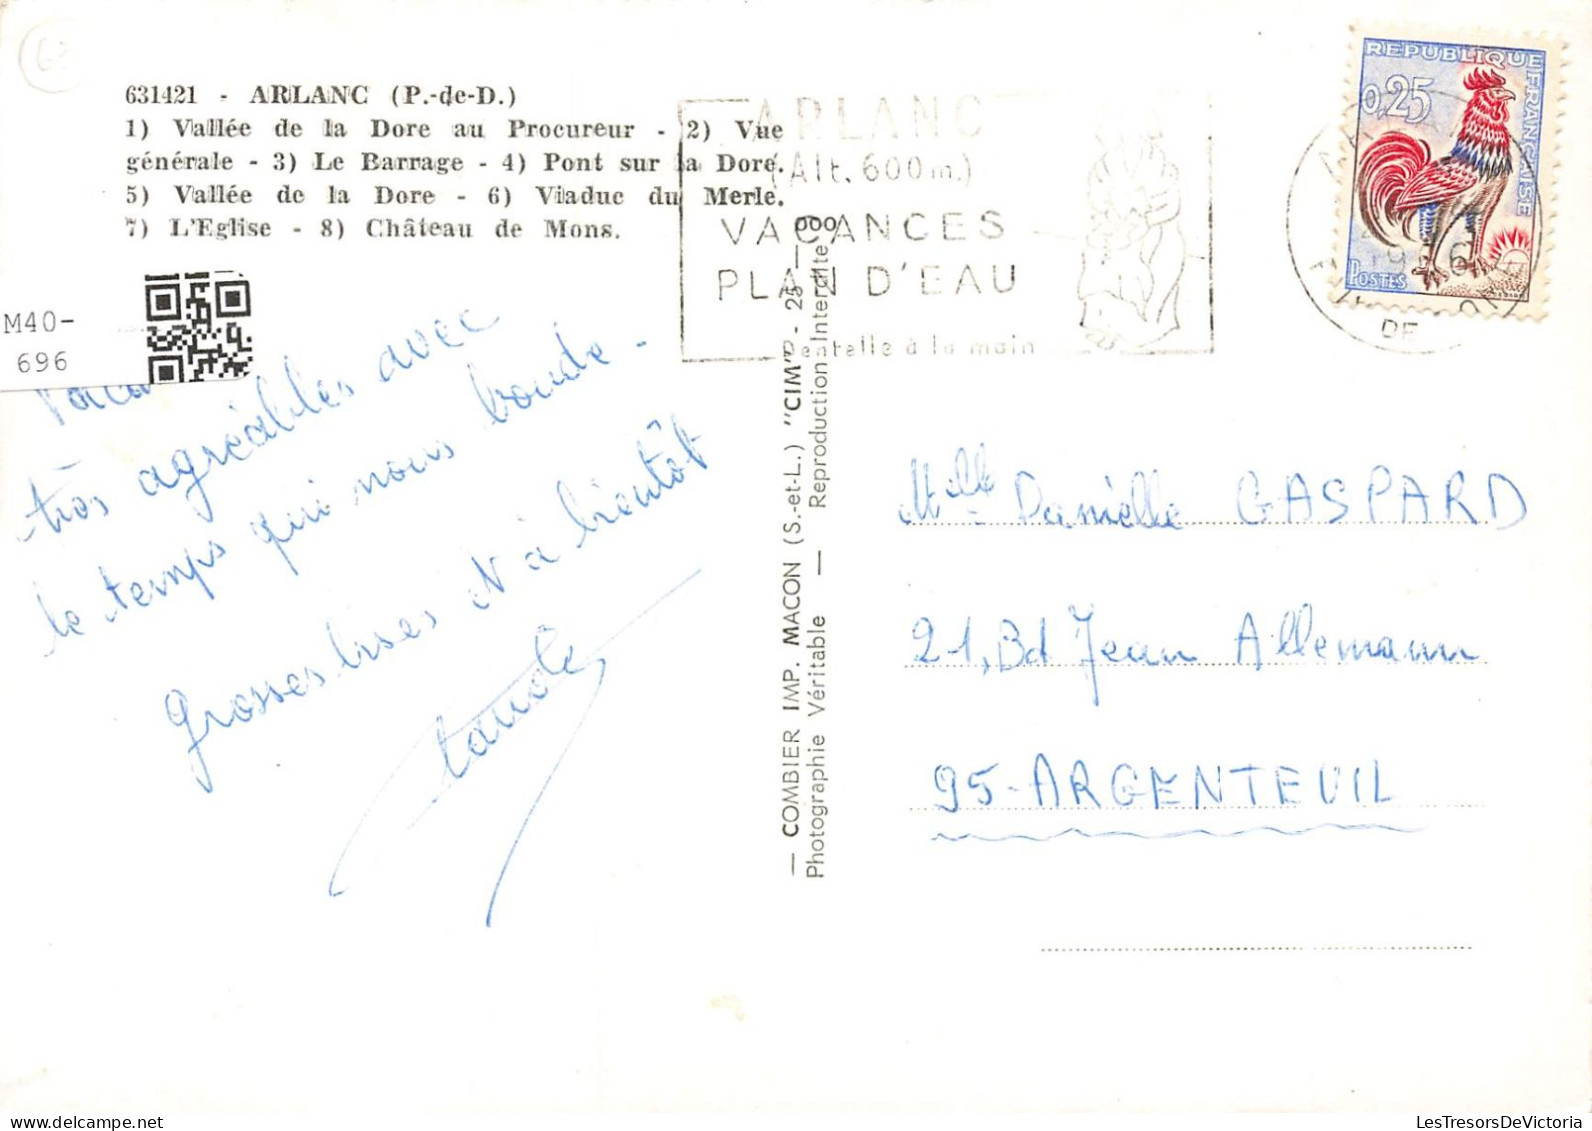 631421 - ARLANC (P.-de-D.)
1) Vallée de la Dore au Procureur - 2) Vue
générale - 3) Le Barrage - 4) Pont sur la Dore.
5) Vallée de la Dore - 6) Viaduc du Merle.
7) L'Eglise - 8) Château de Mons.
M40-
696
très agréables avec
le temps qui nous boude -
grosses bises et à bientôt
ARLANC
(Alt. 600 m.)
VACANCES
PLAN D'EAU
Dentelle à la main
REPUBLIQUE FRANCAISE
0,25
POSTES
DE
— COMBIER IMP. MACON (S.-et-L.) "CIM" - 25 —
Photographie Véritable — Reproduction Interdite
Melle Danielle GASPARD
21, Bd Jean Allemann
95-ARGENTEUIL
LesTresorsDeVictoria